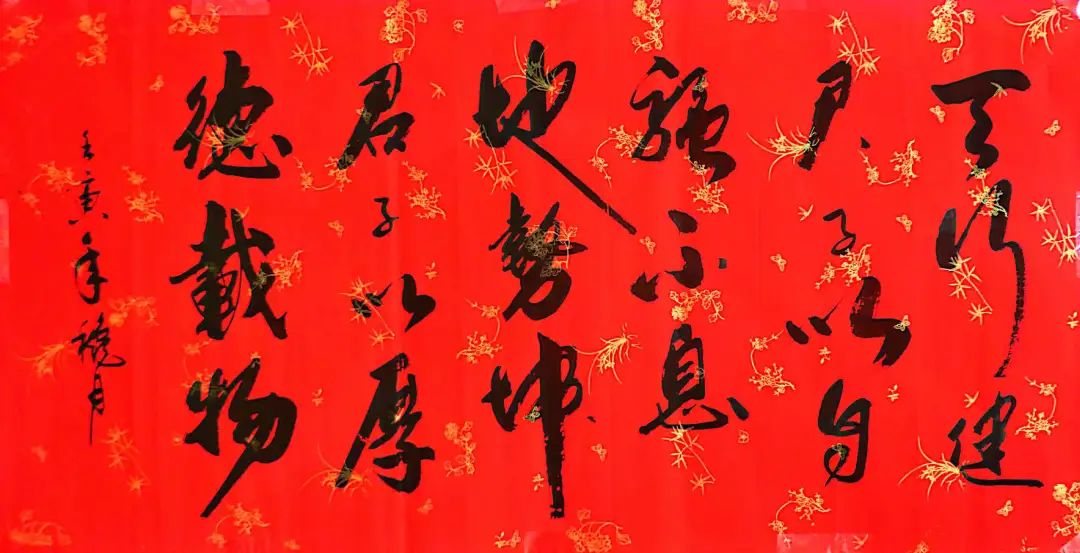 天行健
君子以自
强不息
地势坤
君子以厚
德载物
壬寅年 晓月